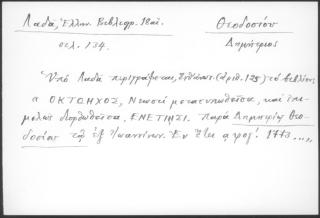 Λαδά, Ἑλλην. Βιβλιογρ. 18 αἰ. Θεοδοσίου
σελ. 134. Δημήτριος
Ὑπὸ Λαδᾶ περιγράφεται, (ἀριθ. 125) τὸ βιβλίον
ΟΚΤΩΗΧΟΣ, Νεωστὶ μετατυπωθεῖσα, καὶ ἐπι-
μελῶς διορθωθεῖσα. ΕΝΕΤΙΗΣΙ. Παρὰ Δημητρίῳ Θεο-
δοσίου τῷ ἐξ Ἰωαννίνων. Ἐν ἔτει αψογ΄. 1773...,,